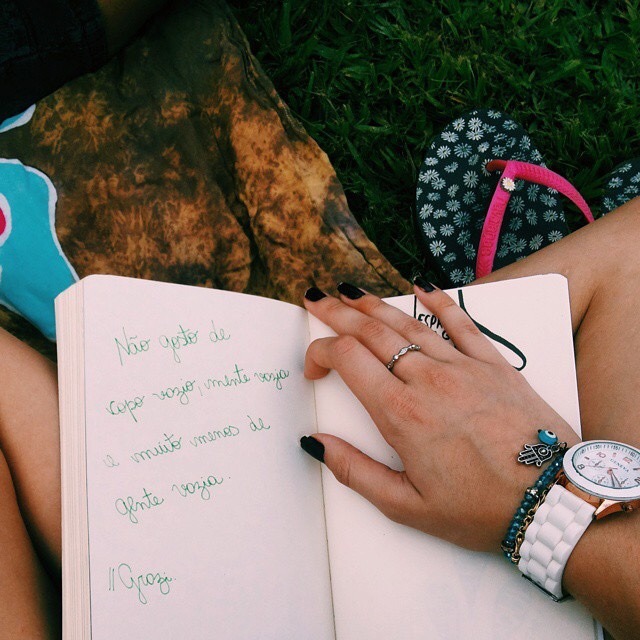 Não gosto de
copo vazio, mente vazia
e muito menos de
gente vazia.
// Grazi.